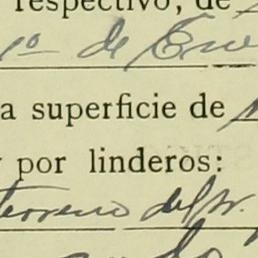 respectivo, de
1º de Ene
a superficie de
por linderos:
terreno del Sr.